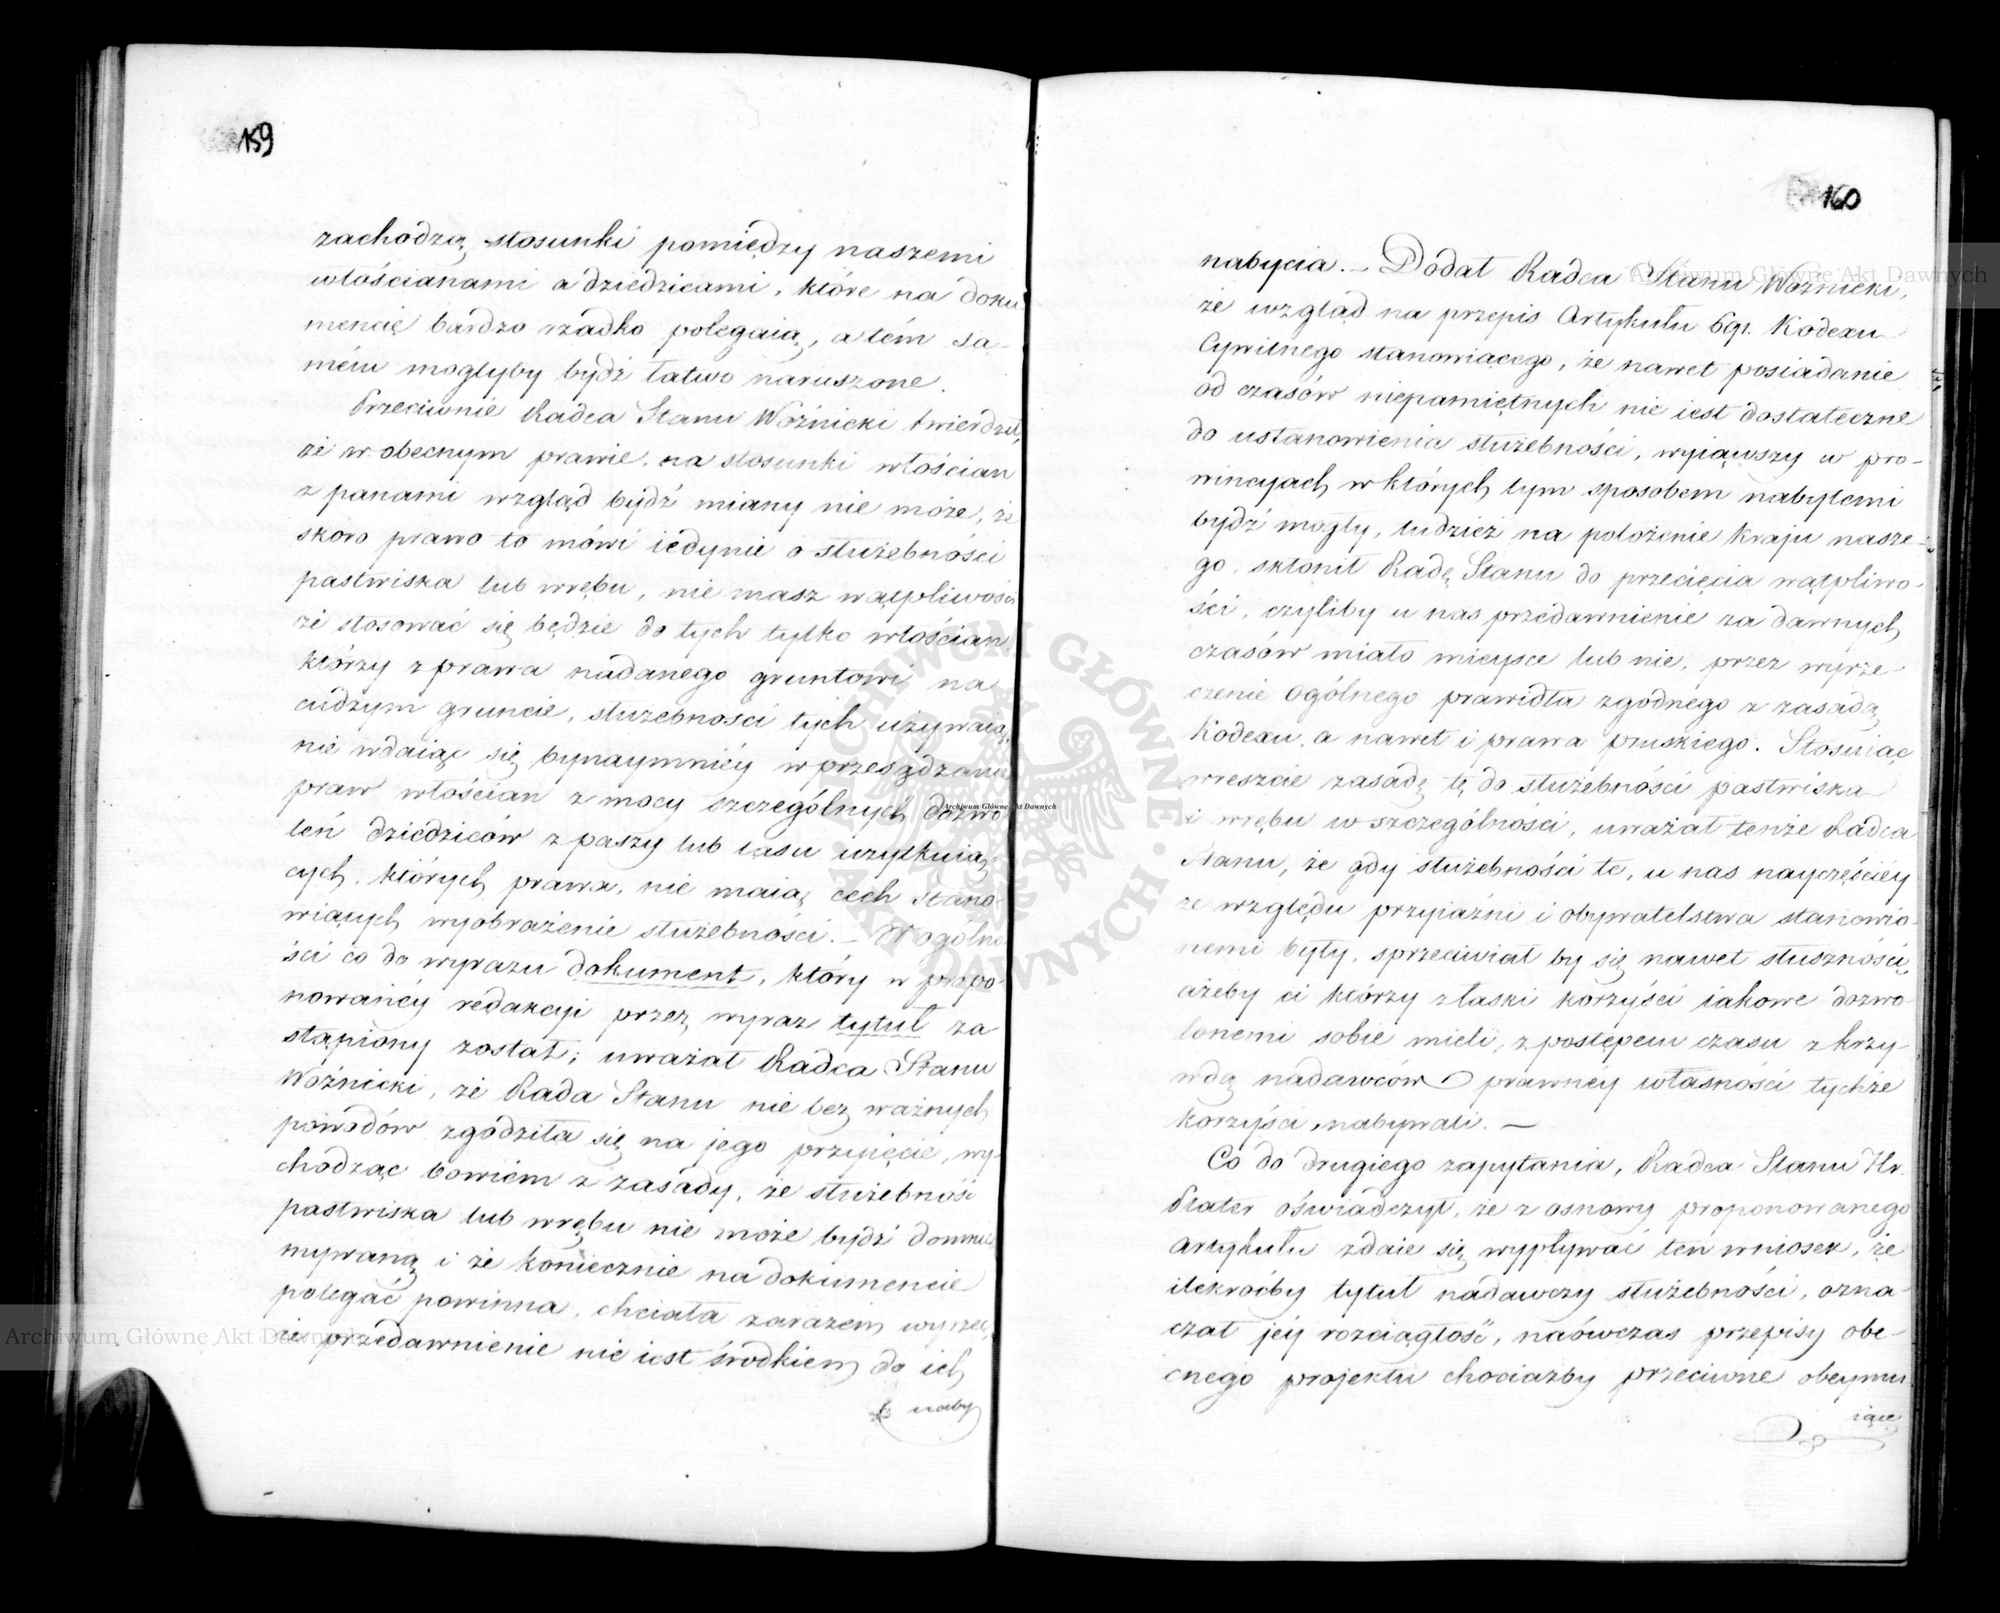 159
zachodzą stosunki pomiędzy naszemi
włościanami a dziedzicami, które na doku
mencie bardzo rzadko polegaią, a tém sa-
mém mogłyby bydź łatwo naruszone.
Przeciwnie Radca Stanu Woźnicki twierdził,
że w obecnym prawie, na stosunki włościan
z panami wzgląd bydź miany nie może, że
skoro prawo to mówi iedynie o służebności
pastwiska lub wrębu, nie masz wątpliwości
że stosować się będzie do tych tylko włościan,
którzy z prawa nadanego gruntowi na
cudzym gruncie, służebności tych używaią,
nie wdaiąc się bynaymniéy w przesądzanie
praw włościan z mocy szczególnych dozwo
leń dziedziców z paszy lub lasu użytkuią-
cych, których prawa, nie maią cech stano
wiących wyobrażenie służebności. – W ogólno
ści co do wyrazu dokument, który w propo-
nowanéy redakcyi przez wyraz tytuł za
stąpiony został; uważał Radca Stanu
Woźnicki, że Rada Stanu nie bez ważnych
powodów zgodziła się na jego przyięcie, wy-
chodząc bowiem z zasady, że służebność
pastwiska lub wrębu nie może bydź domnie
mywaną i że koniecznie na dokumencie
polegać powinna, chciała zarazem wyrzec,
że przedawnienie nie iest środkiem do ich
naby
160
nabycia. – Dodał Radca Stanu Woźnicki,
że wzgląd na przepis Artykułu 691. Kodexu
Cywilnego stanowiącego, że nawet posiadanie
od czasów niepamiętnych nie iest dostateczne
do ustanowienia służebności, wyiąwszy w pro-
wincyach w których tym sposobem nabytemi
bydź mogły, tudzież na położenie Kraju nasze-
go, skłonił Radę Stanu do przecięcia wątpliwo-
ści, czyliby u nas przedawnienie za dawnych
czasów miało mieysce lub nie, przez wyrze-
czenie ogólnego prawidła zgodnego z zasadą
Kodexu, a nawet i prawa pruskiego. Stosuiąc
wreszcie zasadę tę do służebności pastwiska
i wrębu w szczególności, uważał tenże Radca
Stanu, że gdy służebności te, u nas nayczęściéy
ze względu przyiaźni i obywatelstwa stanowio-
nemi były, sprzeciwiał by się nawet słuszności,
ażeby ci którzy z łaski korzyści iakowe dozwo
lonemi sobie mieli, z postępem czasu z krzy-
wdą nadawców prawnéy własności tychże
korzyści nabywali. –
Co do drugiego zapytania, Radca Stanu Hr.
Plater oświadczył, że z osnowy proponowanego
Artykułu zdaie się wypływać ten wniosek, że
ilekroćby tytuł nadawczy służebności, ozna-
czał jéy rozciągłość, naówczas przepisy obe-
cnego projektu chociażby przeciwne obeymu
iące
Archiwum Główne Akt Dawnych
Archiwum Główne Akt Dawnych
Archiwum Główne Akt Dawnych
ARCHIWUM GŁÓWNE AKT DAWNYCH